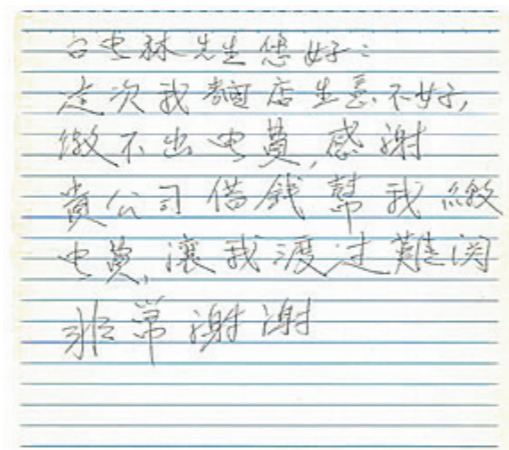 台电林先生您好：
这次我麵店生意不好,
繳不出电費,感谢
貴公司借钱幫我繳
电費,讓我渡过難関
非常谢谢